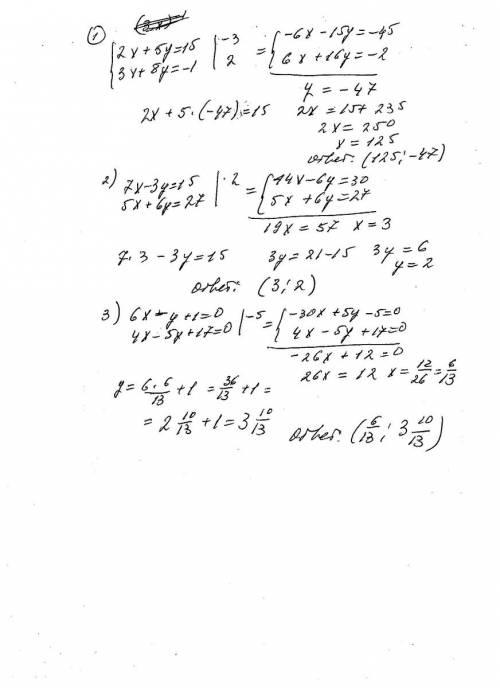 ①
{2x+5y=15 | -3 = {-6x-15y=-45
3x+8y=-1 | 2 6x+16y=-2
y = -47
2x+5·(-47)=15 2x=15+235
2x=250
x=125
ответ: (125; -47)
2) 7x-3y=15 | ·2 = {14x-6y=30
5x+6y=27 5x+6y=27
19x=57 x=3
7·3-3y=15 3y=21-15 3y=6
y=2
ответ: (3; 2)
3) 6x-y+1=0 | -5 = {-30x+5y-5=0
4x-5y+17=0 4x-5y+17=0
-26x+12=0
26x=12 x=12/26=6/13
y=6·6/13+1=36/13+1=
=2 10/13+1=3 10/13 ответ: (6/13; 3 10/13)